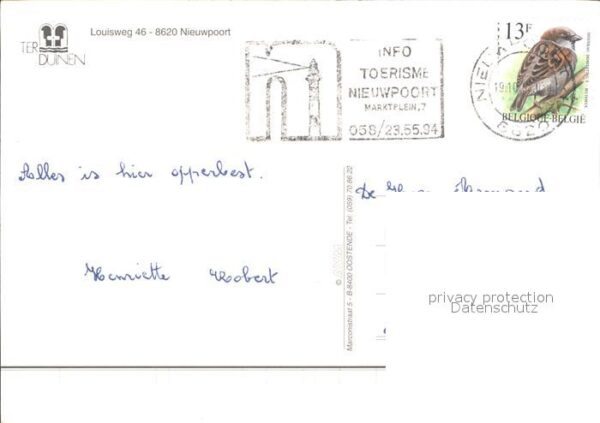 TER
DUINEN
Louisweg 46 - 8620 Nieuwpoort
INFO
TOERISME
NIEUWPOORT
MARKTPLEIN, 7
058/23.55.94
13F
BELGIQUE-BELGIË
Alles is hier opperbest.
Henriette Robert
De Heer
Marconistraat 5 - B-8400 OOSTENDE - Tel. (059) 70 86 22
privacy protection
Datenschutz